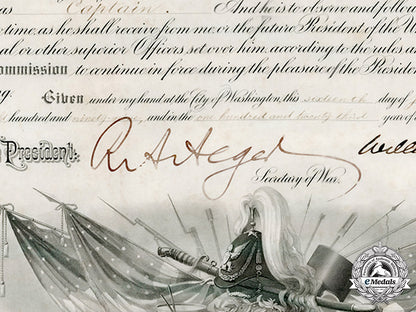 as Captain. And he is to observe and follow
time, as he shall receive from me, or the future President of the U
al or other superior Officers set over him, according to the rules a
ommission to continue in force during the pleasure of the Presiden
ng.
Given under my hand at the City of Washington, this sixteenth day of
hundred and ninety nine, and in the one hundred and twenty third year
President: R. A. Alger Will
Secretary of War.
eMedals